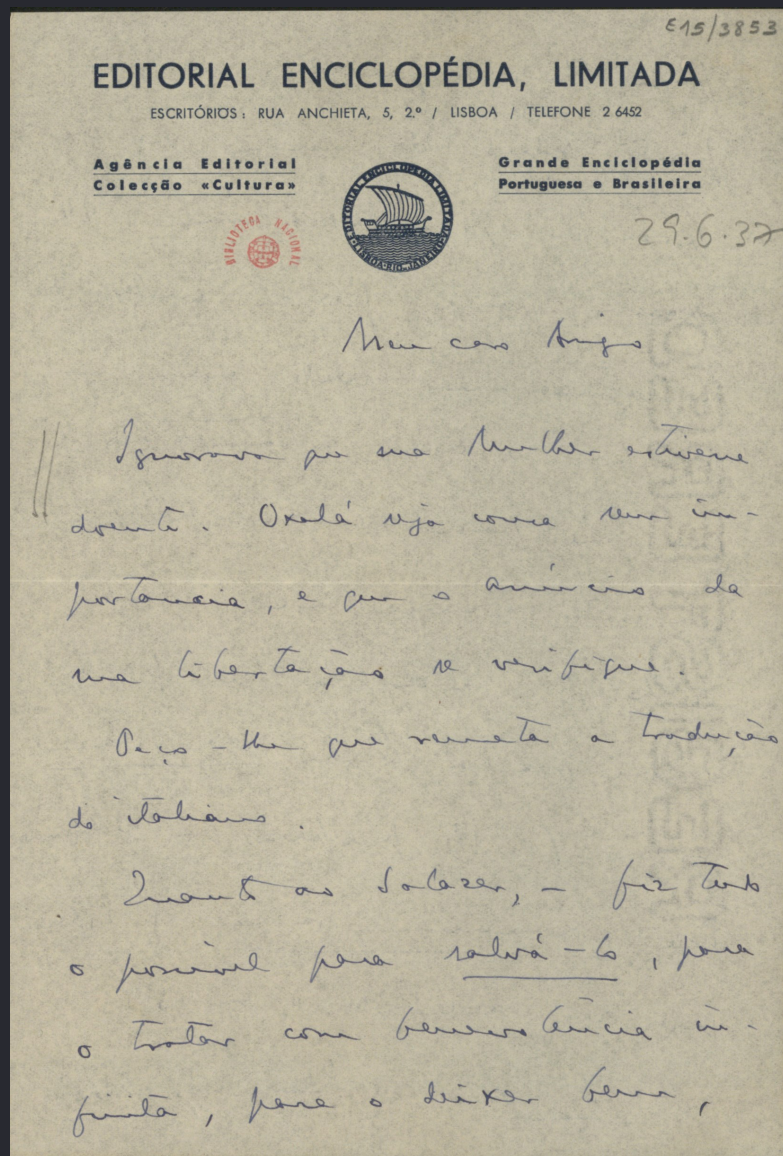 E15/3853
EDITORIAL ENCICLOPÉDIA, LIMITADA
ESCRITÓRIOS: RUA ANCHIETA, 5, 2.º / LISBOA / TELEFONE 2 6452
Agência Editorial
Colecção «Cultura»
Grande Enciclopédia
Portuguesa e Brasileira
EDITORIAL ENCICLOPEDIA LIMITADA
LISBOA-RIO DE JANEIRO
BIBLIOTECA NACIONAL
29.6.37
Meu caro Amigo
Ignorava que sua Mulher estivesse
doente. Oxalá seja cousa sem im-
portancia, e que o anúncio da
sua libertação se verifique.
Peço-lhe que remeta a tradução
do italiano.
Quanto ao Salazar, – fiz tudo
o possível para salvá-lo, para
o tratar com benevolência in-
finita, para o deixar bem,